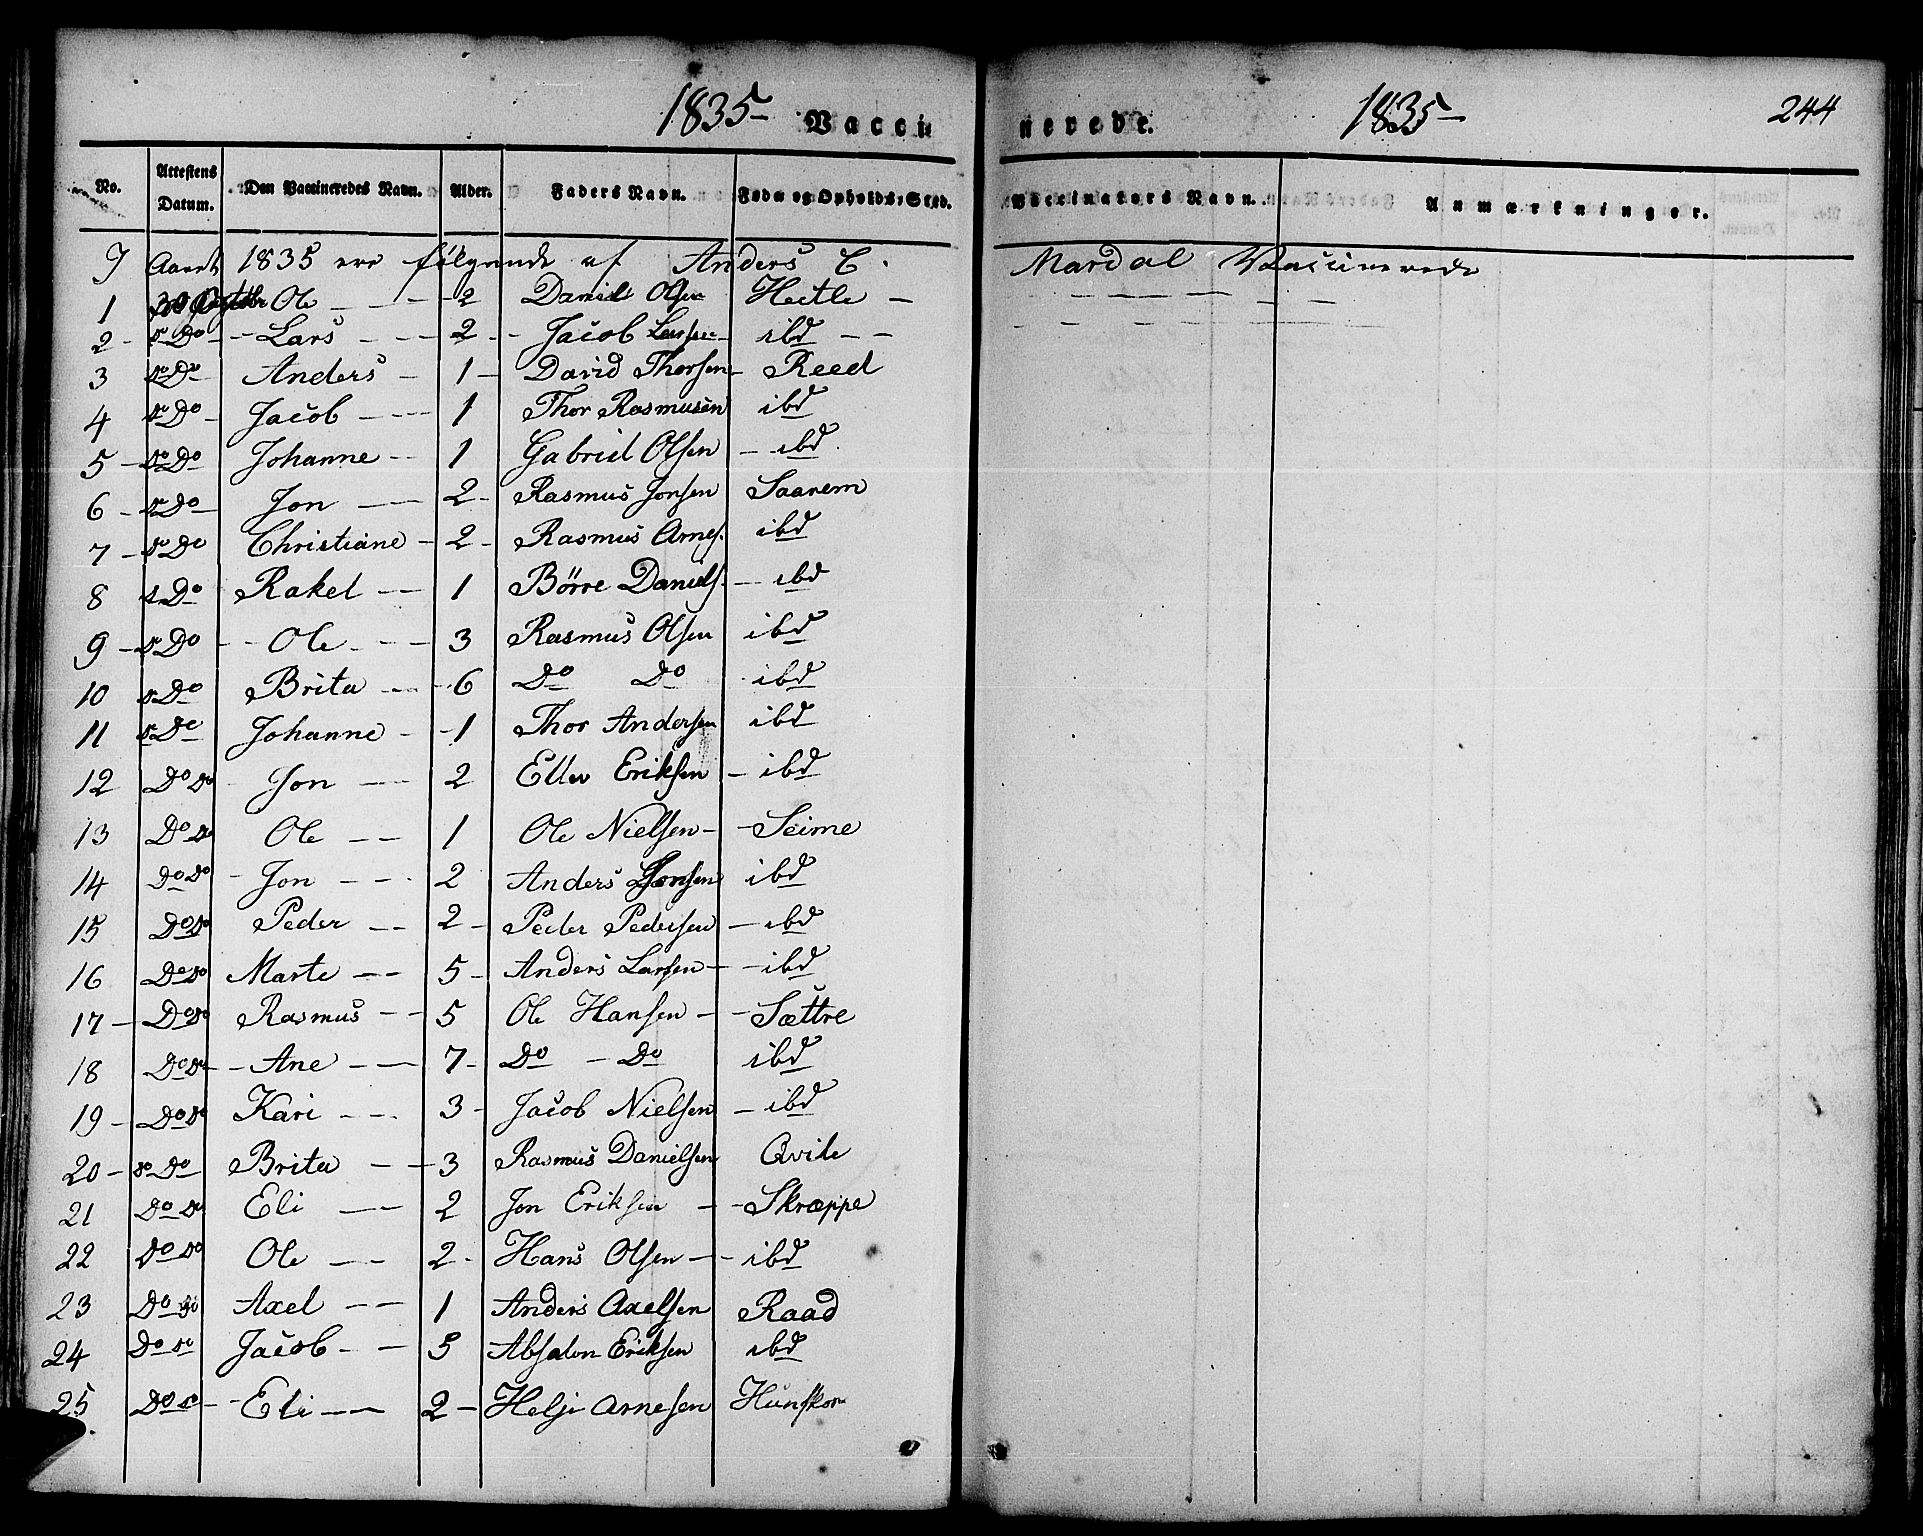 1835 Vaccinerede. 1835 244
No. Attestens Datum. Den Vaccineredes Navn. Alder. Faders Navn. Føde og Opholds-Sted. Vaccinators Navn. Anmærkninger.
I Aaret 1835 ere følgende af Anders C. Mardal Vaccinerede
1 30 Ole 2 Daniel Olsen Hetle
2 do Do Lars 2 Jacob Larsen ibd
3 do Do Anders 1 David Thorsen Reed
4 do Do Jacob 1 Thor Rasmusen ibd
5 do Do Johanne 1 Gabriel Olsen ibd
6 do Do Jon 2 Rasmus Jonsen Saarem
7 do Do Christiane 2 Rasmus Arnes. ibd
8 do Do Rakel 1 Börre Daniels. ibd
9 do Do Ole 3 Rasmus Olsen ibd
10 do Do Brita 6 Do Do ibd
11 do Do Johanne 1 Thor Andersen ibd
12 Do do Jon 2 Erik­sen ibd
13 Do do Ole 1 Ole Nielsen Seime
14 Do do Jon 2 Anders Jonsen ibd
15 Do do Peder 2 Peder Pedersen ibd
16 Do do Marte 5 Anders Larsen ibd
17 Do do Rasmus 5 Ole Hansen Sættre
18 Do do Ane 7 Do Do ibd
19 Do do Kari 3 Jacob Nielsen ibd
20 do Do Brita 3 Rasmus Danielsen Qvile
21 Do do Eli 2 Jon Eriksen Skræppe
22 Do do Ole 2 Hans Olsen ibd
23 Do do Axel 1 Anders Axelsen Raad
24 Do do Jacob 5 Absalon Eriksen ibd
25 Do do Eli 2 Helje Arnesen Hunskor